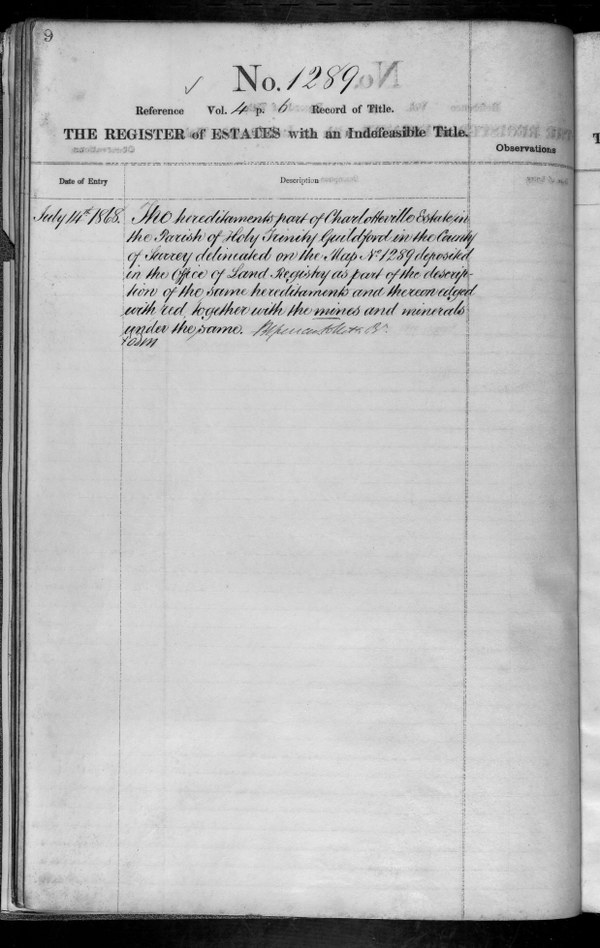 9
No. 1289
Reference Vol. 4 p. 6 Record of Title.
THE REGISTER of ESTATES with an Indefeasible Title.
Observations
Date of Entry
Description
July 14th 1868.
The hereditaments part of Charlotteville Estate in
the Parish of Holy Trinity Guildford in the County
of Surrey delineated on the Map No 1289 deposited
in the Office of Land Registry as part of the descrip-
tion of the same hereditaments and thereon edged
with red, together with the mines and minerals
under the same.